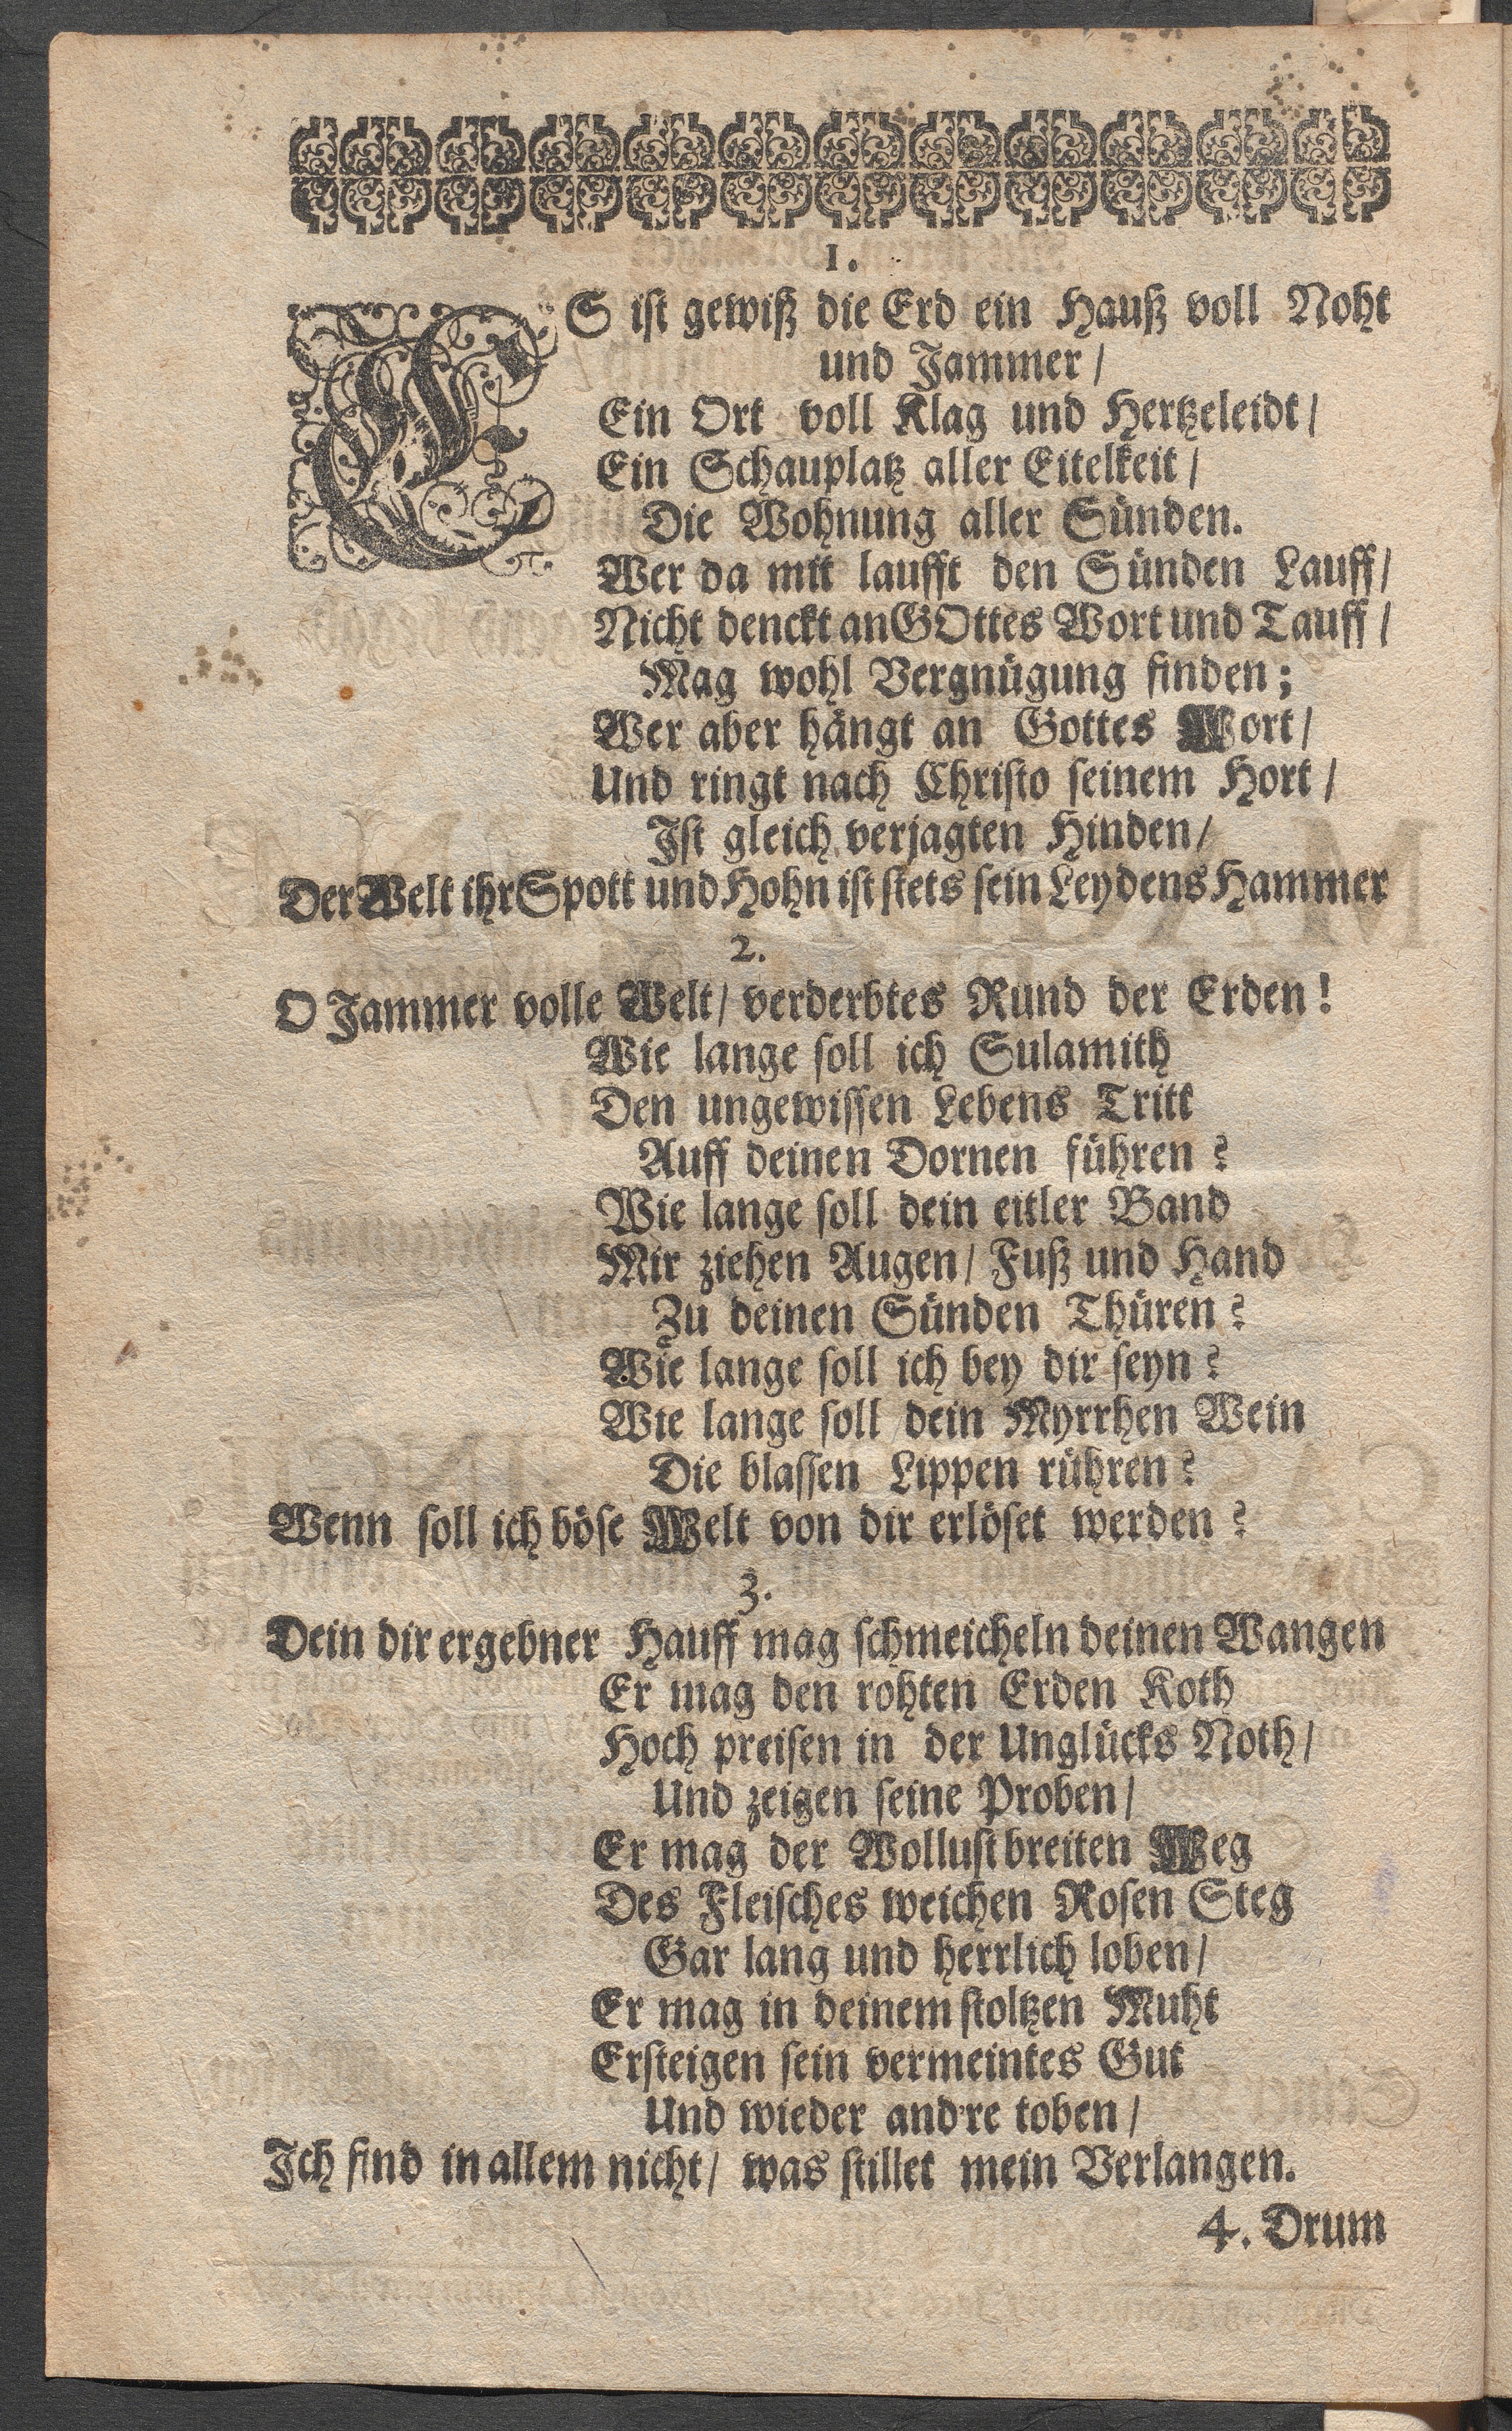 1.
ES ist gewiß die Erd ein Hauß voll Noht
und Jammer/
Ein Ort voll Klag und Hertzeleidt/
Ein Schauplatz aller Eitelkeit/
Die Wohnung aller Sünden.
Wer da mit laufft den Sünden Lauff/
Nicht denckt an GOttes Wort und Tauff/
Mag wohl Vergnügung finden;
Wer aber hängt an Gottes Wort/
Und ringt nach Christo seinem Hort/
Ist gleich verjagten Hinden/
Der Welt ihr Spott und Hohn ist stets sein Leydens Hammer
2.
O Jammer volle Welt/ verderbtes Rund der Erden!
Wie lange soll ich Sulamith
Den ungewissen Lebens Tritt
Auff deinen Dornen führen?
Wie lange soll dein eitler Band
Mir ziehen Augen/ Fuß und Hand
Zu deinen Sünden Thüren?
Wie lange soll ich bey dir seyn?
Wie lange soll dein Myrrhen Wein
Die blassen Lippen rühren?
Wenn soll ich böse Welt von dir erlöset werden?
3.
Dein dir ergebner Hauff mag schmeicheln deinen Wangen
Er mag den rohten Erden Koth
Hoch preisen in der Unglücks Noth/
Und zeigen seine Proben/
Er mag der Wollust breiten Weg
Des Fleisches weichen Rosen Steg
Gar lang und herrlich loben/
Er mag in deinem stoltzen Muht
Ersteigen sein vermeintes Gut
Und wieder and're toben/
Ich find in allem nicht/ was stillet mein Verlangen.
4. Drum